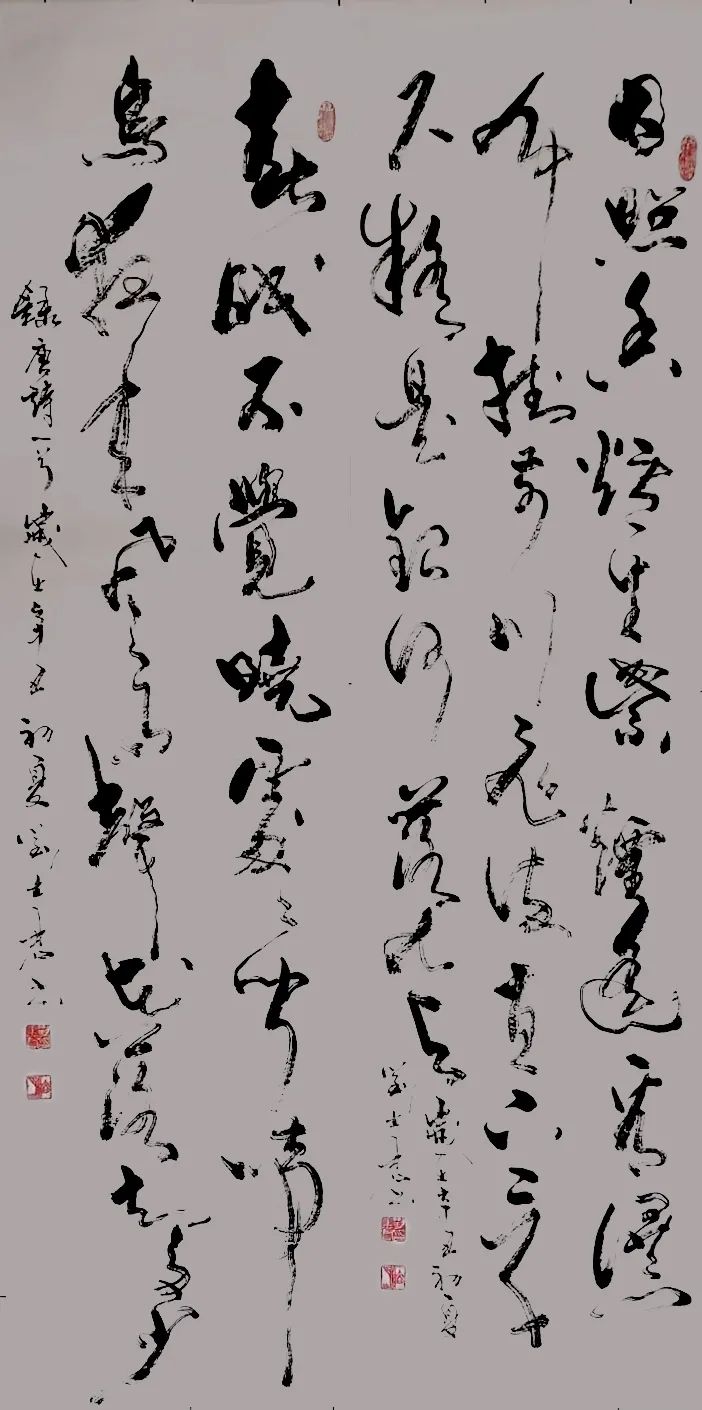 日照香爐生紫煙遙看瀑
布掛前川飛流直下三千
尺疑是銀河落九天
歲在辛丑初夏
劉士書
春眠不覺曉處々聞啼
鳥夜來風雨聲花落知多少
錄唐詩一首歲在辛丑初夏劉士書